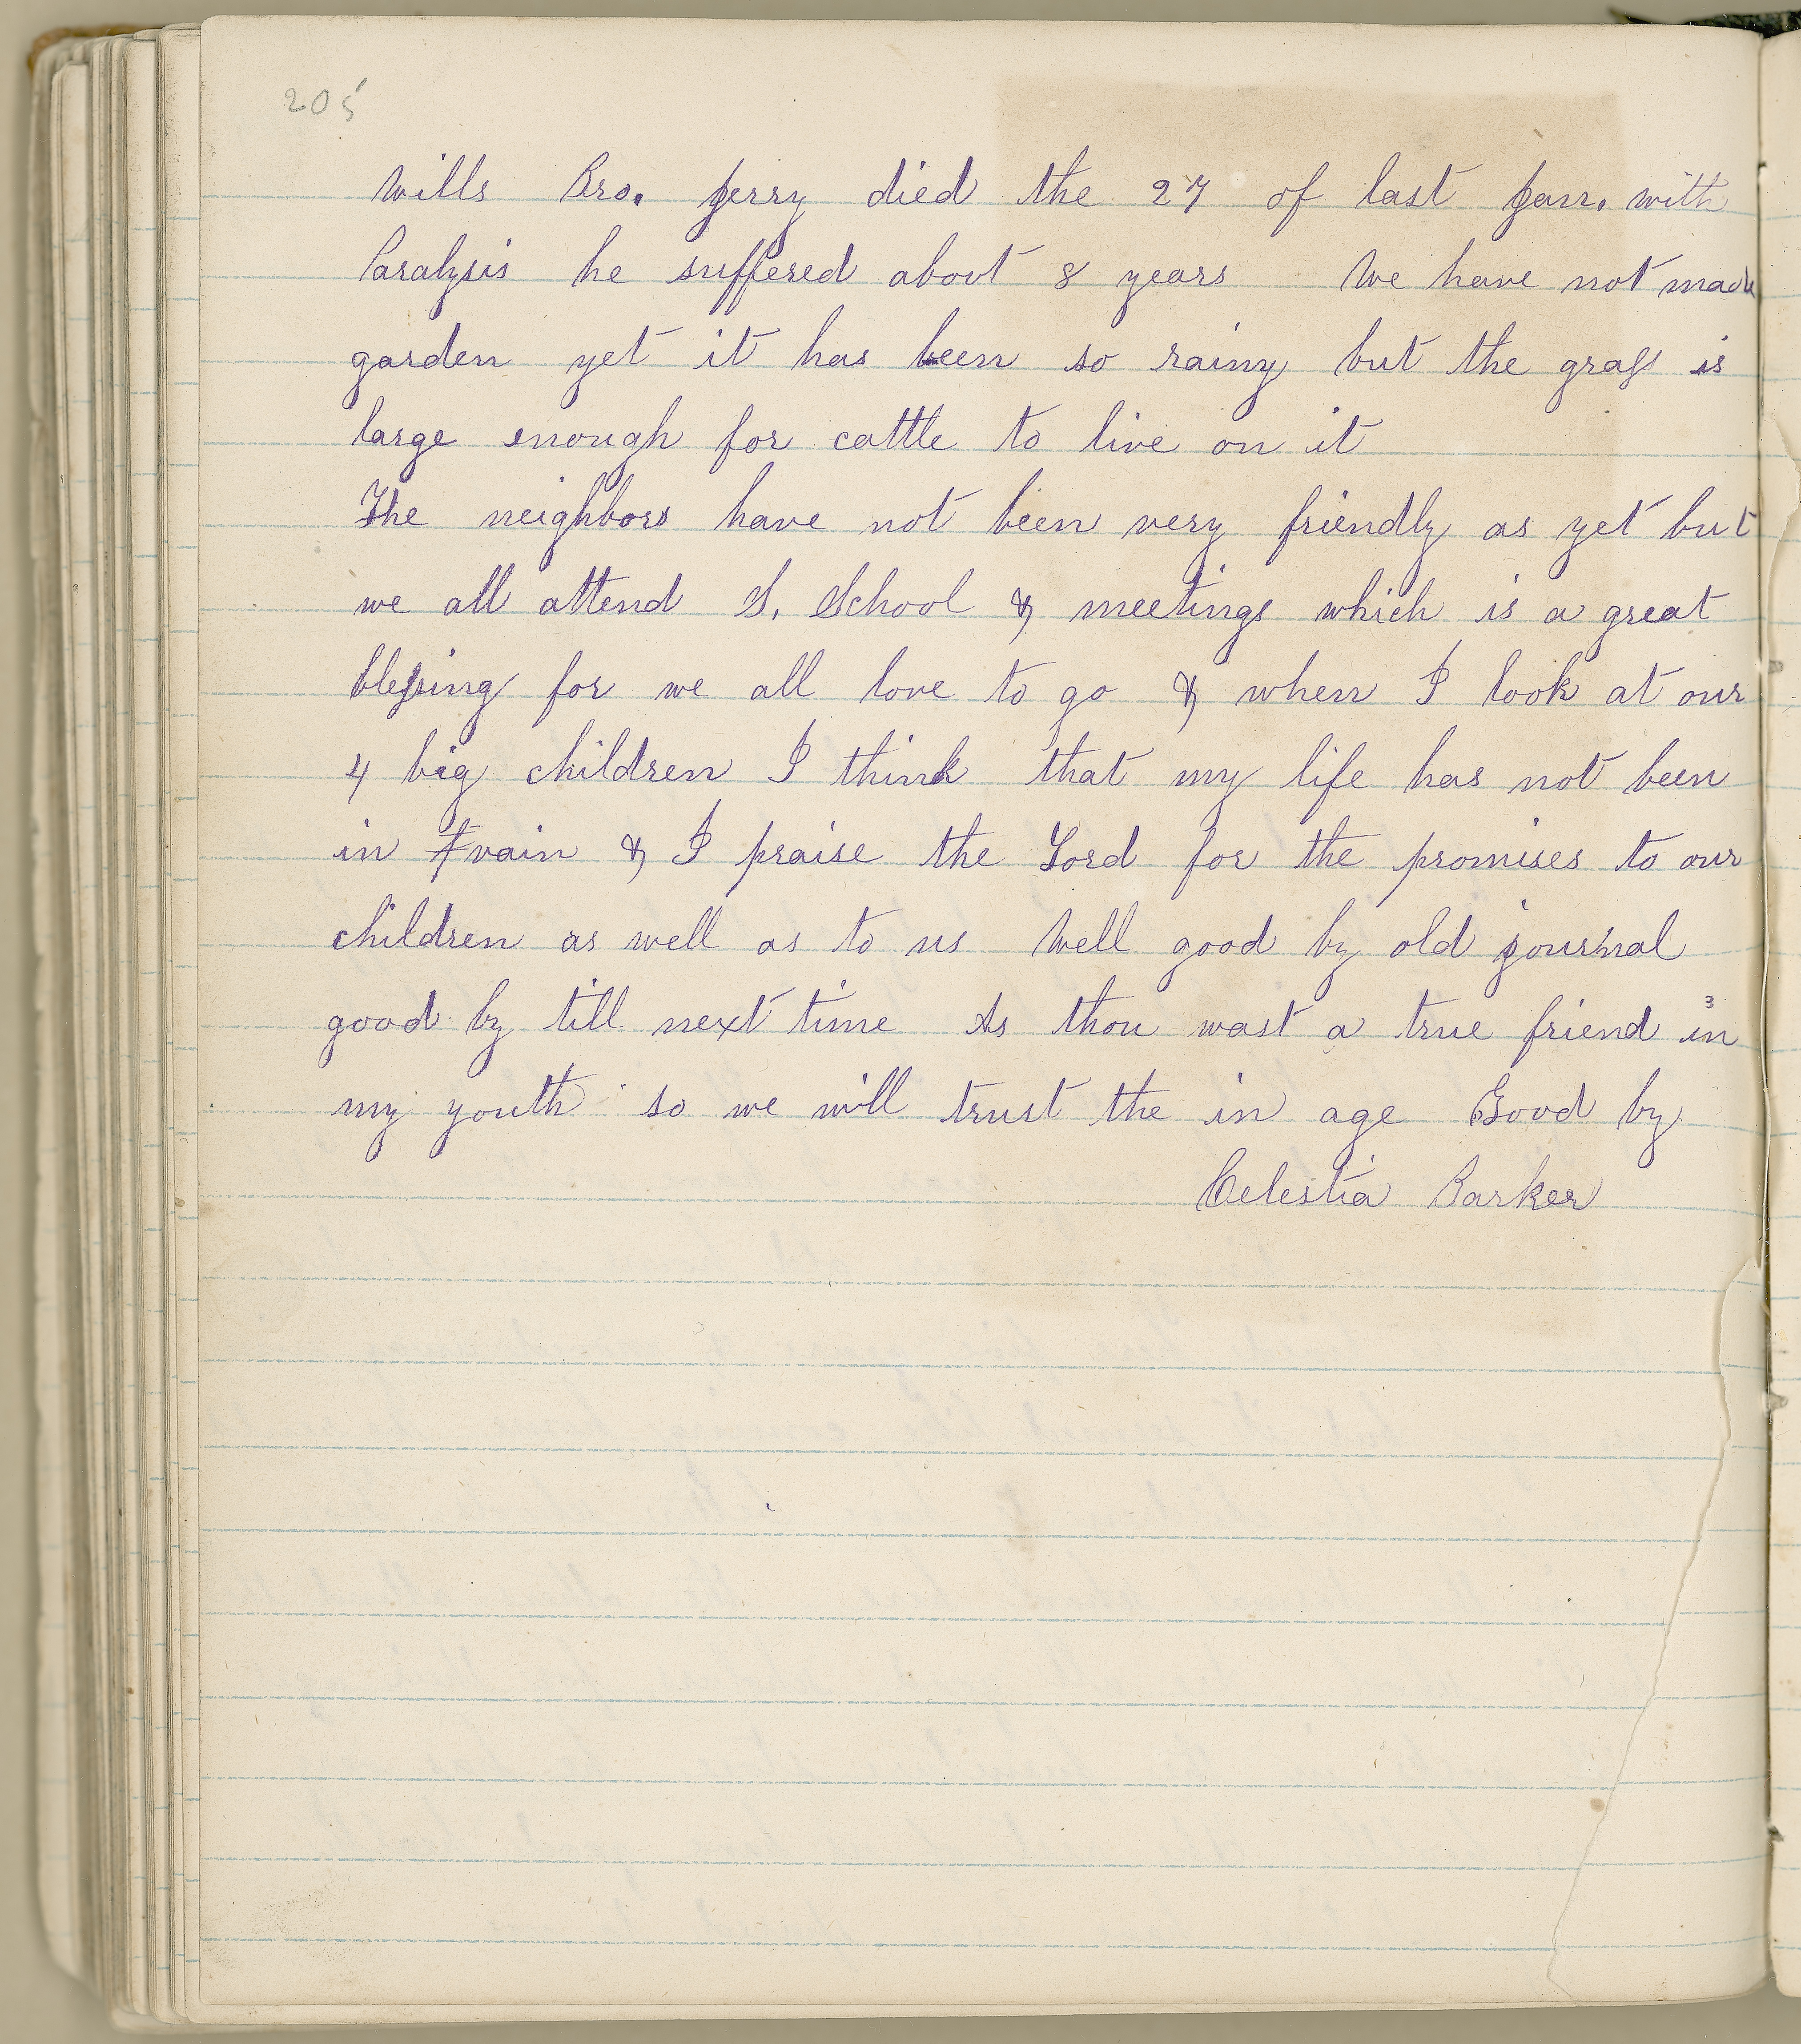 205
Wills Bro. Jerry died the 27 of last Jan. with
Paralysis he suffered about 8 years We have not made
garden yet it has been so rainy but the grass is
large enough for cattle to live on it
The neighbors have not been very friendly as yet but
we all attend S. School & meetings which is a great
blessing for we all love to go & when I look at our
4 big children I think that my life has not been
in vain & I praise the Lord for the promises to our
children as well as to us Well good by old journal
good by till next time As thou wast a true friend in
my youth so we will trust the in age Good by
Celestia Barker